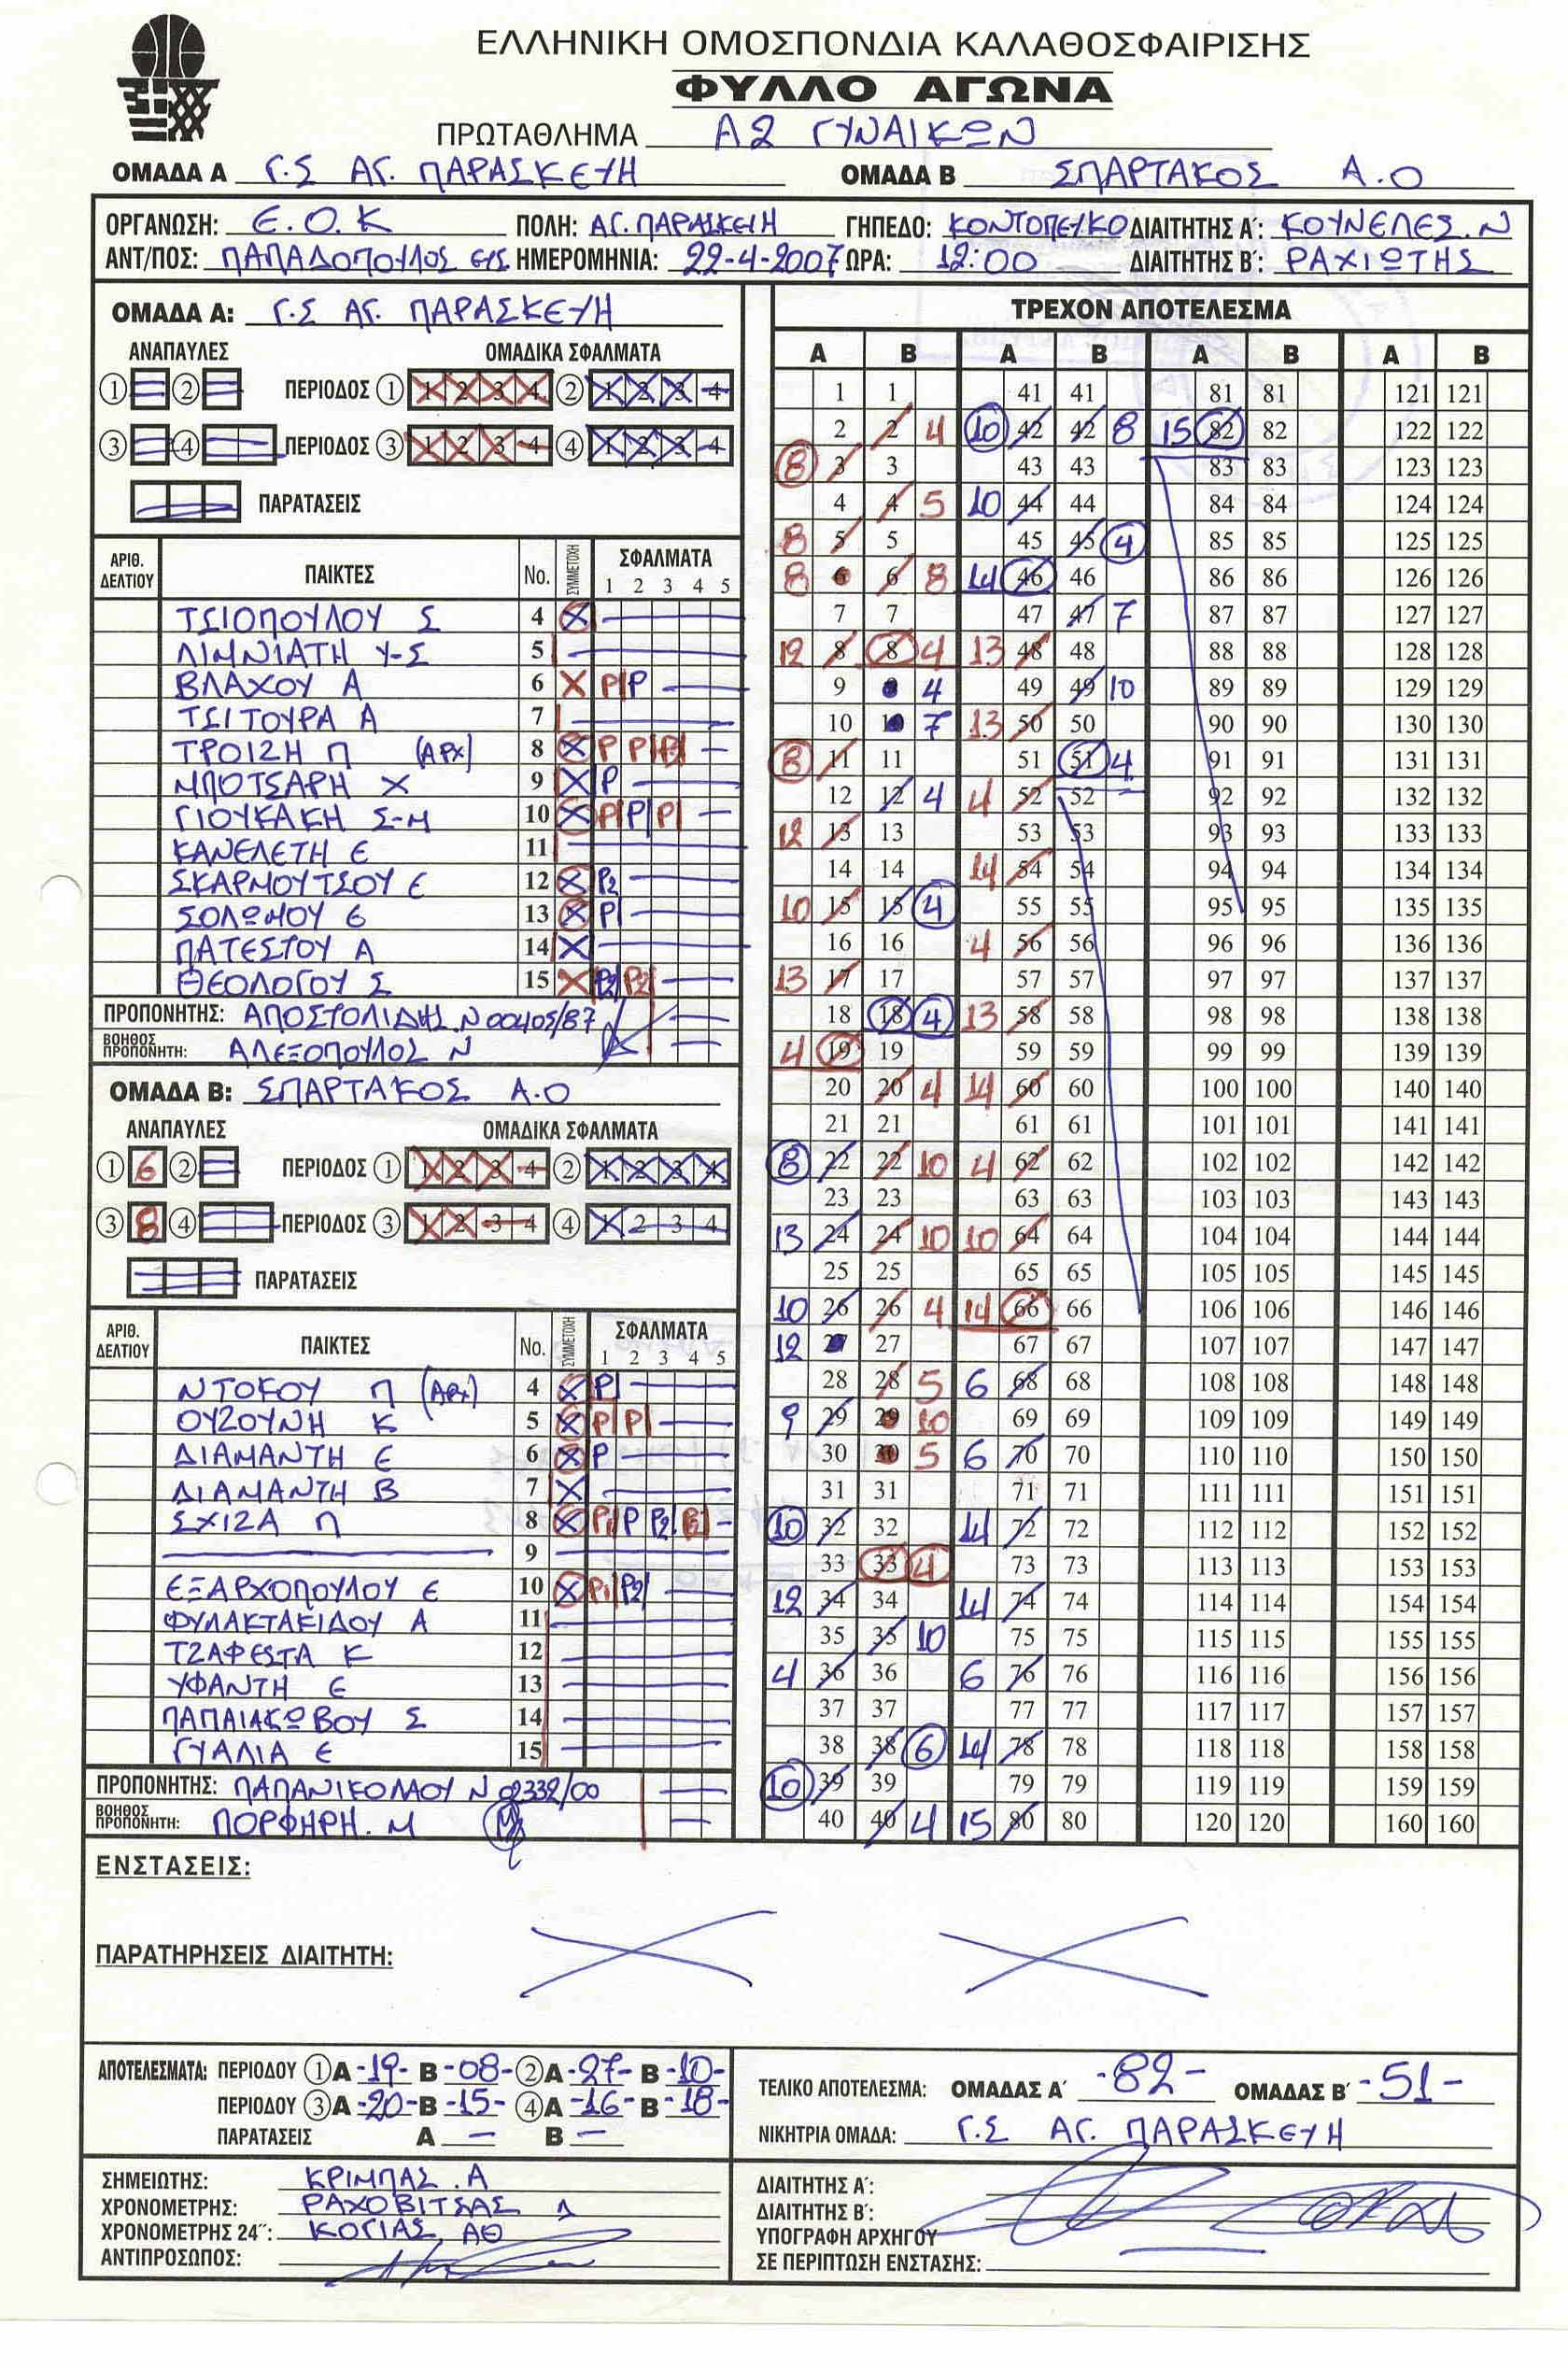 ΕΛΛΗΝΙΚΗ ΟΜΟΣΠΟΝΔΙΑ ΚΑΛΑΘΟΣΦΑΙΡΙΣΗΣ
ΦΥΛΛΟ ΑΓΩΝΑ
ΠΡΩΤΑΘΛΗΜΑ Α2 ΓΥΝΑΙΚΩΝ
ΟΜΑΔΑ Α Γ.Σ ΑΓ. ΠΑΡΑΣΚΕΥΗ ΟΜΑΔΑ Β ΣΠΑΡΤΑΚΟΣ Α.Ο
ΟΡΓΑΝΩΣΗ: Ε.Ο.Κ ΠΟΛΗ: ΑΓ. ΠΑΡΑΣΚΕΥΗ ΓΗΠΕΔΟ: ΚΟΝΤΟΠΕΥΚΟ ΔΙΑΙΤΗΤΗΣ Α΄: ΚΟΥΝΕΛΕΣ.Ν
ΑΝΤ/ΠΟΣ: ΠΑΠΑΔΟΠΟΥΛΟΣ ΗΜΕΡΟΜΗΝΙΑ: 22-4-2007 ΩΡΑ: 12:00 ΔΙΑΙΤΗΤΗΣ Β΄: ΡΑΧΙΩΤΗΣ
ΟΜΑΔΑ Α: Γ.Σ ΑΓ. ΠΑΡΑΣΚΕΥΗ
ΑΝΑΠΑΥΛΕΣ ΟΜΑΔΙΚΑ ΣΦΑΛΜΑΤΑ
1 2 ΠΕΡΙΟΔΟΣ 1 1 2 3 4 2 1 2 3 4
3 4 ΠΕΡΙΟΔΟΣ 3 1 2 3 4 4 1 2 3 4
ΠΑΡΑΤΑΣΕΙΣ
ΑΡΙΘ. ΔΕΛΤΙΟΥ ΠΑΙΚΤΕΣ No. ΣΥΜΜΕΤΟΧΗ ΣΦΑΛΜΑΤΑ 1 2 3 4 5
ΤΣΙΟΠΟΥΛΟΥ Σ 4 X
ΛΙΜΝΙΑΤΗ Υ-Σ 5
ΒΛΑΧΟΥ Α 6 X P P
ΤΣΙΤΟΥΡΑ Α 7
ΤΡΟΙΖΗ Π (ΑΡΧ) 8 X P P P2
ΜΠΟΤΣΑΡΗ Χ 9 X P
ΓΙΟΥΚΑΚΗ Σ-Μ 10 X P P P
ΚΑΝΕΛΕΤΗ Ε 11
ΣΚΑΡΜΟΥΤΣΟΥ Ε 12 X P2
ΣΟΛΩΜΟΥ Θ 13 X P
ΠΑΤΕΣΤΟΥ Α 14 X
ΘΕΟΛΟΓΟΥ Σ 15 X P2 P2
ΠΡΟΠΟΝΗΤΗΣ: ΑΠΟΣΤΟΛΙΔΗΣ.Ν 00405/87
ΒΟΗΘΟΣ ΠΡΟΠΟΝΗΤΗ: ΑΛΕΞΟΠΟΥΛΟΣ Ν
ΟΜΑΔΑ Β: ΣΠΑΡΤΑΚΟΣ Α.Ο
ΑΝΑΠΑΥΛΕΣ ΟΜΑΔΙΚΑ ΣΦΑΛΜΑΤΑ
1 6 2 ΠΕΡΙΟΔΟΣ 1 1 2 3 4 2 1 2 3 4
3 8 4 ΠΕΡΙΟΔΟΣ 3 1 2 3 4 4 1 2 3 4
ΠΑΡΑΤΑΣΕΙΣ
ΑΡΙΘ. ΔΕΛΤΙΟΥ ΠΑΙΚΤΕΣ No. ΣΥΜΜΕΤΟΧΗ ΣΦΑΛΜΑΤΑ 1 2 3 4 5
ΝΤΟΚΟΥ Π (ΑΡΧ) 4 X P
ΟΥΖΟΥΝΗ Κ 5 X P P
ΔΙΑΜΑΝΤΗ Ε 6 X P
ΔΙΑΜΑΝΤΗ Β 7 X
ΣΧΙΖΑ Π 8 X P1 P P2 P2
9
ΕΞΑΡΧΟΠΟΥΛΟΥ Ε 10 X P1 P2
ΦΥΛΑΚΤΑΚΙΔΟΥ Α 11
ΤΖΑΦΕΣΤΑ Κ 12
ΥΦΑΝΤΗ Ε 13
ΠΑΠΑΙΑΚΩΒΟΥ Σ 14
ΓΥΑΛΙΑ Ε 15
ΠΡΟΠΟΝΗΤΗΣ: ΠΑΠΑΝΙΚΟΛΑΟΥ Ν 02332/00
ΒΟΗΘΟΣ ΠΡΟΠΟΝΗΤΗ: ΠΟΡΦΗΡΗ. Μ
ΤΡΕΧΟΝ ΑΠΟΤΕΛΕΣΜΑ
Α Β Α Β Α Β Α Β
1 1 41 41 81 81 121 121
2 2 4 10 42 42 8 15 82 82 122 122
8 3 3 43 43 83 83 123 123
4 4 5 10 44 44 84 84 124 124
8 5 5 45 45 4 85 85 125 125
8 6 6 8 14 46 46 86 86 126 126
7 7 47 47 7 87 87 127 127
12 8 8 4 13 48 48 88 88 128 128
9 9 4 49 49 10 89 89 129 129
10 10 7 13 50 50 90 90 130 130
8 11 11 51 51 4 91 91 131 131
12 12 4 4 52 52 92 92 132 132
12 13 13 53 53 93 93 133 133
14 14 14 54 54 94 94 134 134
10 15 15 4 55 55 95 95 135 135
16 16 4 56 56 96 96 136 136
13 17 17 57 57 97 97 137 137
18 18 4 13 58 58 98 98 138 138
4 19 19 59 59 99 99 139 139
20 20 4 14 60 60 100 100 140 140
21 21 61 61 101 101 141 141
8 22 22 10 4 62 62 102 102 142 142
23 23 63 63 103 103 143 143
13 24 24 10 10 64 64 104 104 144 144
25 25 65 65 105 105 145 145
10 26 26 4 14 66 66 106 106 146 146
12 27 27 67 67 107 107 147 147
28 28 5 6 68 68 108 108 148 148
9 29 29 10 69 69 109 109 149 149
30 30 5 6 70 70 110 110 150 150
31 31 71 71 111 111 151 151
10 32 32 14 72 72 112 112 152 152
33 33 4 73 73 113 113 153 153
12 34 34 14 74 74 114 114 154 154
35 35 10 75 75 115 115 155 155
4 36 36 6 76 76 116 116 156 156
37 37 77 77 117 117 157 157
38 38 6 14 78 78 118 118 158 158
10 39 39 79 79 119 119 159 159
40 40 4 15 80 80 120 120 160 160
ΕΝΣΤΑΣΕΙΣ:
ΠΑΡΑΤΗΡΗΣΕΙΣ ΔΙΑΙΤΗΤΗ:
ΑΠΟΤΕΛΕΣΜΑΤΑ: ΠΕΡΙΟΔΟΥ 1 Α -19- Β -08- 2 Α -27- Β -10-
ΠΕΡΙΟΔΟΥ 3 Α -20- Β -15- 4 Α -16- Β -18-
ΠΑΡΑΤΑΣΕΙΣ Α - Β -
ΤΕΛΙΚΟ ΑΠΟΤΕΛΕΣΜΑ: ΟΜΑΔΑΣ Α΄ -82- ΟΜΑΔΑΣ Β΄ -51-
ΝΙΚΗΤΡΙΑ ΟΜΑΔΑ: Γ.Σ ΑΓ. ΠΑΡΑΣΚΕΥΗ
ΣΗΜΕΙΩΤΗΣ: ΚΡΙΜΠΑΣ .Α
ΧΡΟΝΟΜΕΤΡΗΣ: ΡΑΧΟΒΙΤΣΑΣ
ΧΡΟΝΟΜΕΤΡΗΣ 24΄΄: ΚΟΓΙΑΣ ΑΘ
ΑΝΤΙΠΡΟΣΩΠΟΣ:
ΔΙΑΙΤΗΤΗΣ Α΄:
ΔΙΑΙΤΗΤΗΣ Β΄:
ΥΠΟΓΡΑΦΗ ΑΡΧΗΓΟΥ
ΣΕ ΠΕΡΙΠΤΩΣΗ ΕΝΣΤΑΣΗΣ: